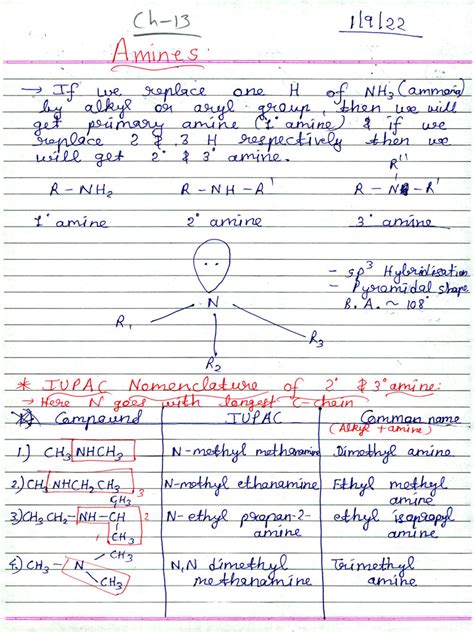 Ch-13
1/9/22
Amines:
→ If we replace one H of NH3 (ammonia)
by alkyl or aryl group, then we will
get primary amine (1° amine) & if we
replace 2 & 3 H respectively then we
will get 2° & 3° amine.
R''
R - NH2   R - NH - R'   R - N - R'
1° amine   2° amine   3° amine
- sp3 Hybridisation
- Pyramidal shape
B.A. ~ 108°
N
R1
R3
R2
* IUPAC Nomenclature of 2° & 3° amine:
→ Here N goes with longest C-chain
Compound   IUPAC   Common name
(Alkyl + amine)
1.) CH3 NHCH3   N-methyl methanamine   Dimethyl amine
2.) CH3 NHCH2CH3   N-methyl ethanamine   Ethyl methyl
amine
CH3 3
3) CH3CH2-NH-CH 2   N-ethyl propan-2-   ethyl isopropyl
amine   amine
CH3
1
CH3
4.) CH3 - N   N,N dimethyl   Trimethyl
CH3   methenamine   amine